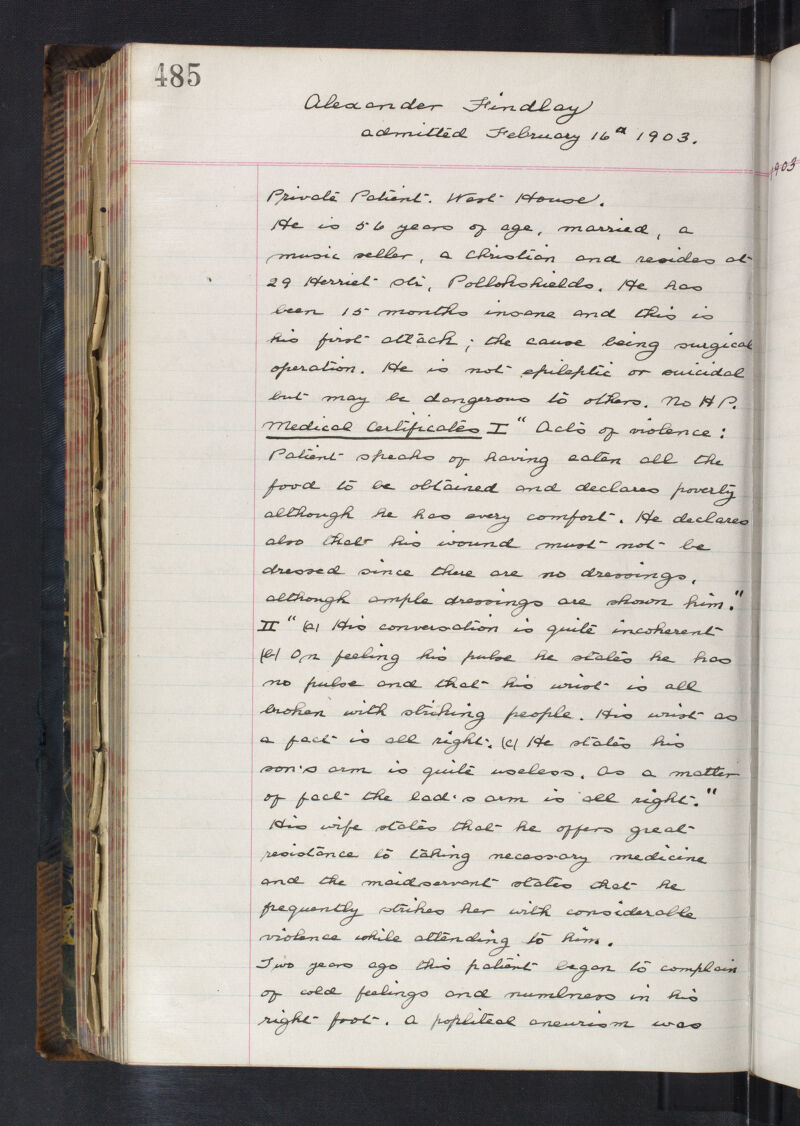 485
Alexander Findlay
admitted February 16th 1903.
1903
Private Patient. West House.
He is 56 years of age, married, a
music seller, a christian and resides at
29 Herriet str, Pollokshields. He has
been 15 months insane and this is
his first attack; the cause being surgical
operation. He is not epileptic or suicidal
but may be dangerous to others. No H P.
Medical Certificates I " Acts of violence:
Patient speaks of having eaten all the
food to be obtained and declares poverty
although he has every comfort. He declares
also that his wound must not be
dressed since there are no dressings,
although ample dressings are shown him."
II " (a) His conversation is quite incoherent
(b) On feeling his pulse he states he has
no pulse and that his wrist is all
broken with striking people. His wrist as
a fact is all right. (c) He states his
son's arm is quite useless. As a matter
of fact the lad's arm is all right."
His wife states that he offers great
resistance to taking necessary medicine
and the maidservant states that he
frequently strikes her with considerable
violence while attending to him.
Two years ago this patient began to complain
of cold feelings and numbness in his
right foot. A popliteal aneurism was